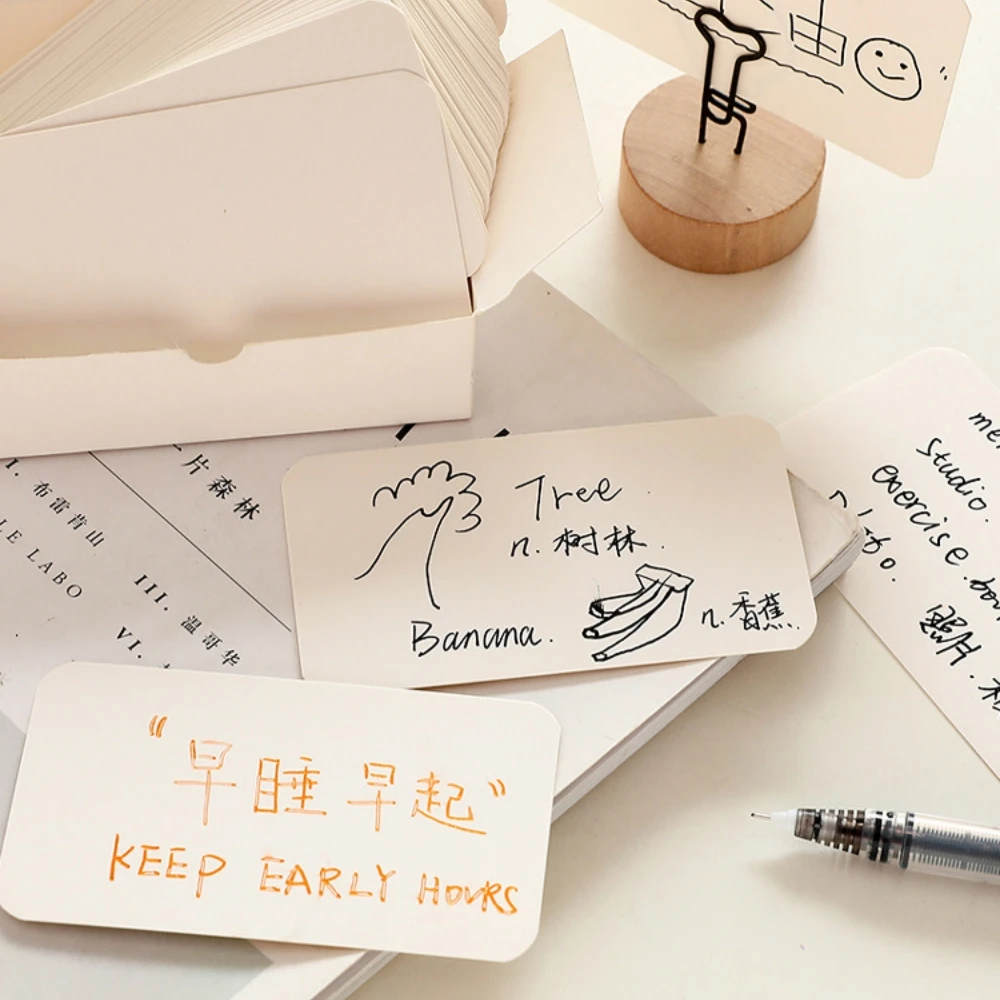 由
一片森林
I. 布雷肯山
LE LABO
III. 温哥华
VI.
Tree
n. 树林.
Banana.
n. 香蕉.
studio.
exercise.
照片.
"早睡早起"
KEEP EARLY HOURS